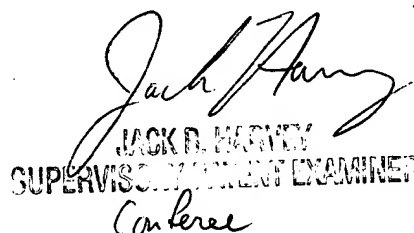 Jack Harvey
JACK R. HARVEY
SUPERVISORY PATENT EXAMINER
Conferee